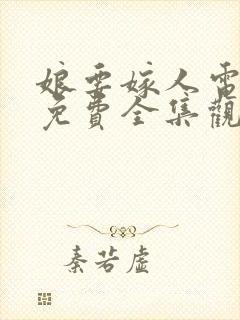 娘要嫁人電
免費全集觀
秦若虛